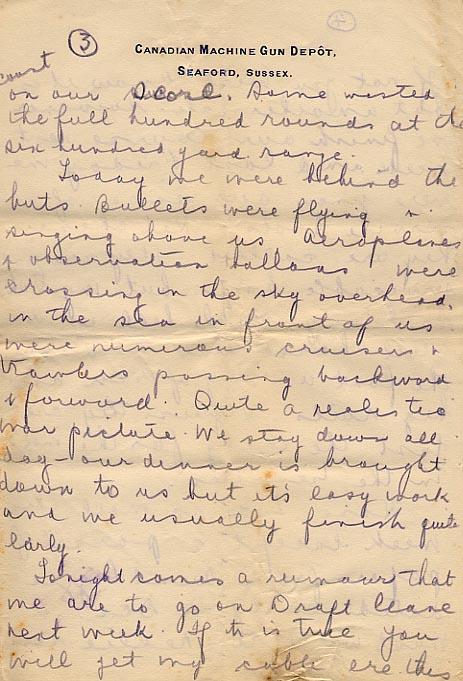 4
3
CANADIAN MACHINE GUN DEPÔT,
SEAFORD, SUSSEX.
count
on our score. Some wasted
the full hundred rounds at the
six hundred yard range.
Today we were behind the
buts. Bullets were flying &
singing above us Aeroplanes
& observation balloons were
crossing in the sky overhead,
in the sea in front of us
were numerous cruisers &
trawlers passing backward
& forward. Quite a realistic
war picture. We stay down all
day - our dinner is brought
down to us but it's easy work
and we usually finish quite
early.
Tonight comes a rumour that
we are to go on Draft leave
next week. If th is true you
will get my cable ere this